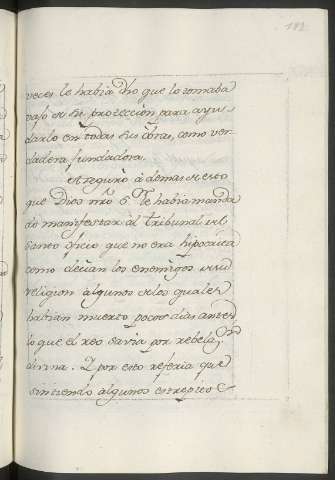 182
veces le habia dho que lo tomaba
vajo de su proteccion para ayu-
darlo en todas sus obras, como ver-
dadera fundadora.
Aseguró á demas de esto
que Dios nro S.r le habia manda
do manifestar al Tribunal del
Santo oficio que no era hipocrita
como decian los enemigos de su
religion algunos de los quales
habian muerto pocos dias antes
lo que el reo savia por rebela.on
divina. Y por esto referia que
sintiendo algunos estrepitos